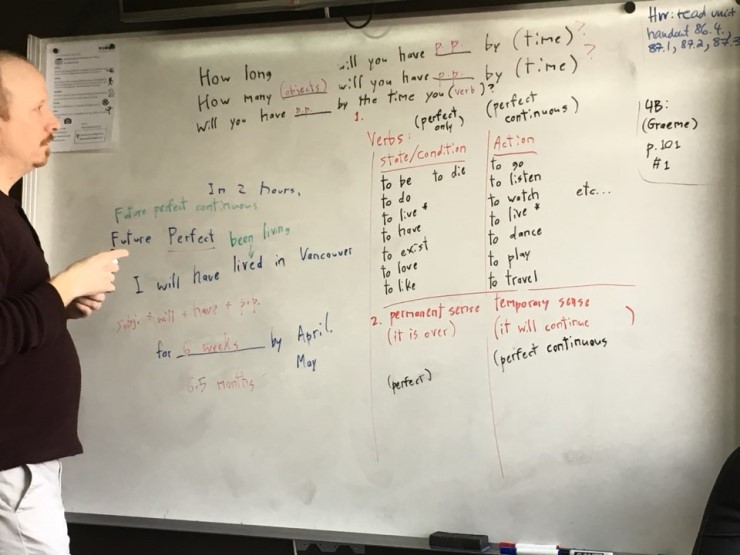 How long will you have p.p. by (time)?
How many (objects) will you have p.p. by (time)?
Will you have ___ p.p. by the time you (verb)?
Hw: read unit
handout 86.4.,
87.1, 87.2, 87.3
4B:
(Graeme)
p. 101
#1
1.
Verbs: (perfect only) (perfect continuous)
state/condition Action
to be to die to go
to do to listen
to live * to watch etc...
to have to live *
to exist to dance
to love to play
to like to travel
2. permanent sense temporary sense
(it is over) (it will continue)
(perfect) (perfect continuous
In 2 hours,
Future perfect continuous
Future Perfect been living
I will have lived in Vancouver
subj. + will + have + p.p.
for 6 weeks by April.
May
6.5 months